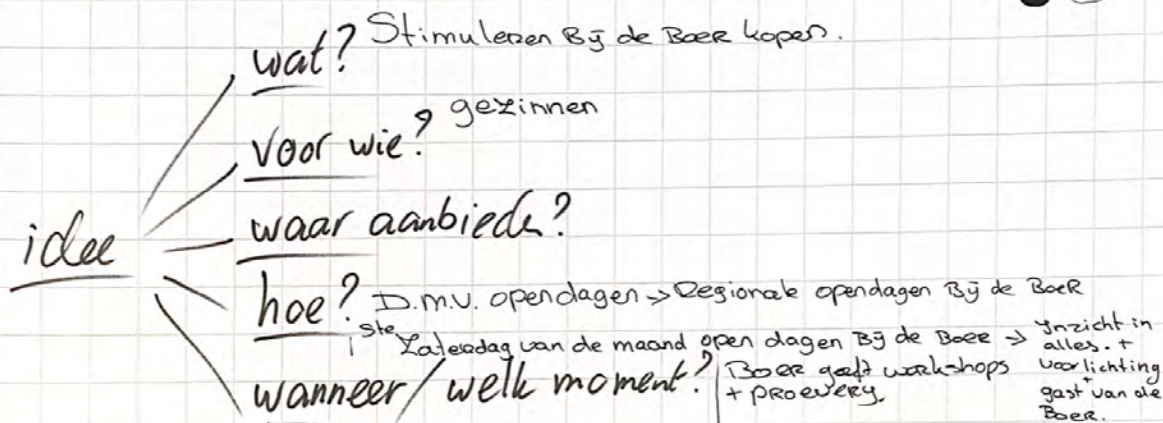 wat? Stimuleren Bij de Boer kopen.
voor wie? gezinnen
idee
waar aanbieden?
hoe? D.m.v. opendagen -> Regionale opendagen Bij de Boer
1ste Zaterdag van de maand open dagen Bij de Boer -> Inzicht in alles. +
voorlichting
+
gast van de
Boer.
wanneer / welk moment? Boer geeft workshops
+ proeverij.